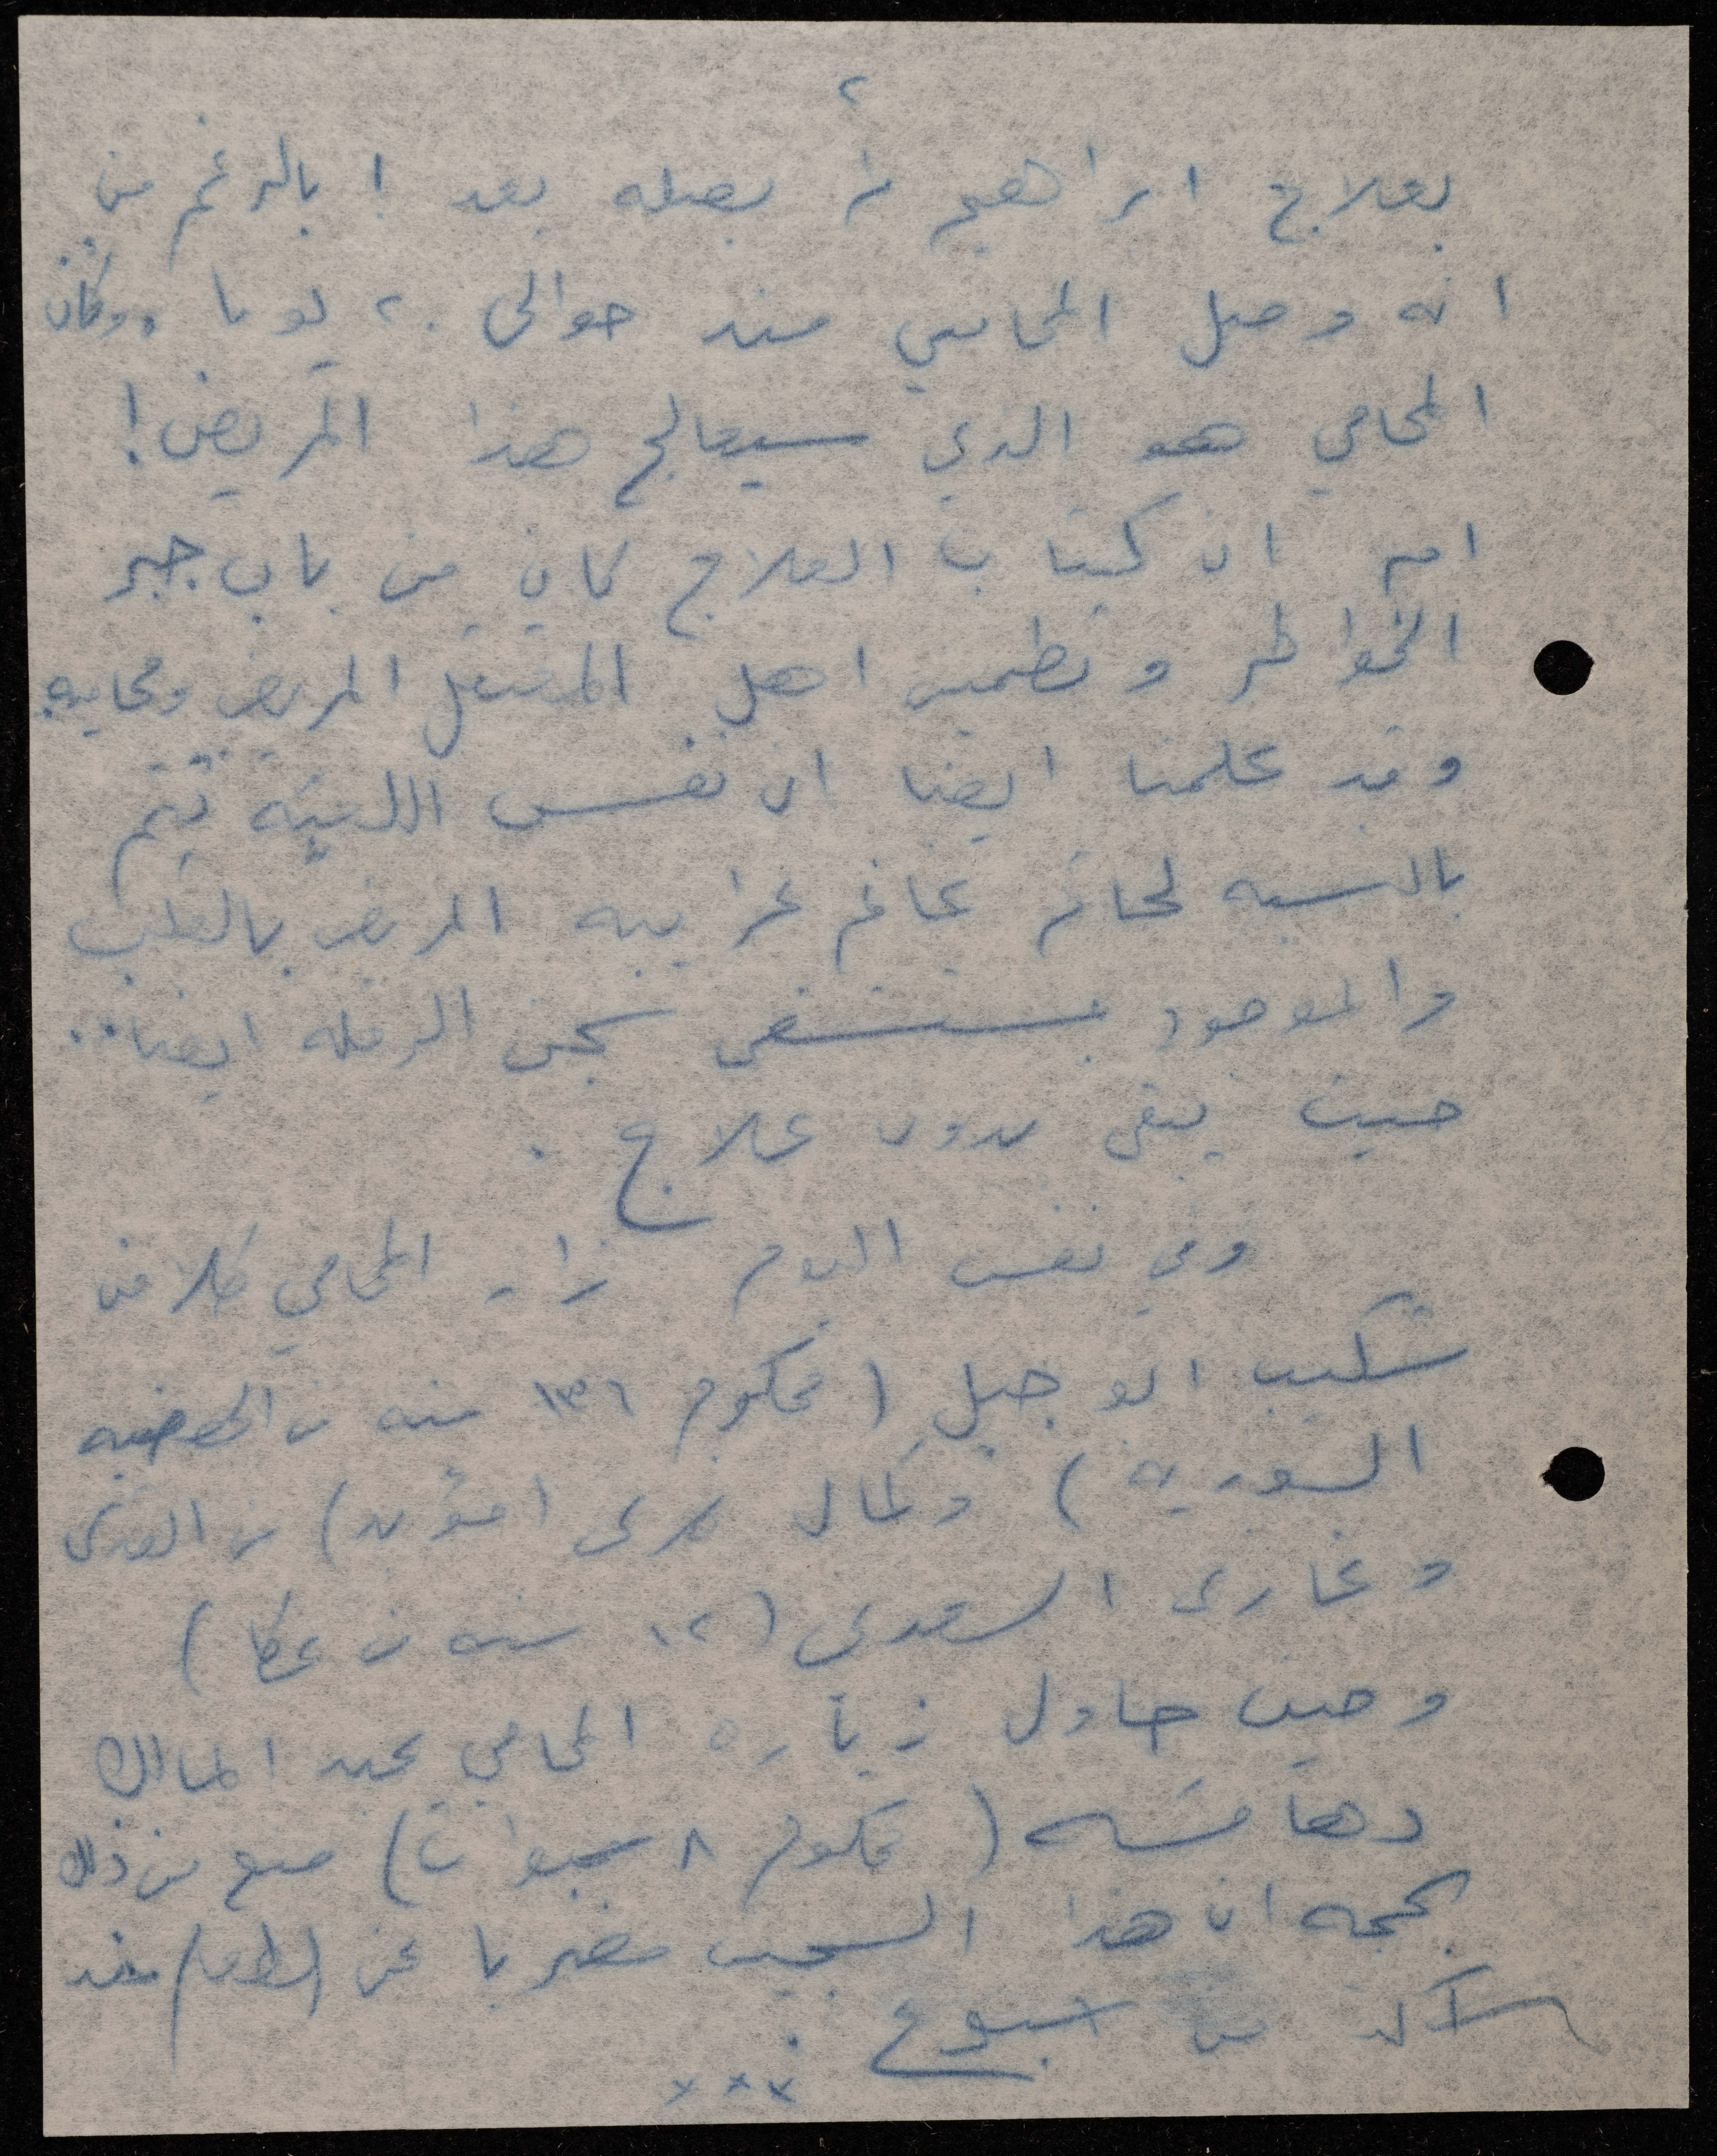 ٢
بعلاج ابراهيم لم يصله بعد ! بالرغم من
انه وصل المحامي منذ حوالي ٢٠ يوما ، وكان
المحامي هو الذي سيعالج هذا المريض !
ام ان كتاب العلاج كان من باب جبر
الخواطر و تطمين اهل المعتقل المريض ومحاميه .
وقد علمنا ايضا ان نفس اللعبة تتم
بالنسبه لحاتم غانم غرايبه المريض بالقلب
والموجود بمستشفى سجن الرمله ايضا ..
حيث يبقى بدون علاج .
وفي نفس اليوم زار المحامي كلا من
شكيب ابو جبل ( محكوم ٣١٦ سنه من الهضبه
السوريه ) وكمال نمري ( مؤبد ) من القدس
وغازي السعدي ( ١٢ سنه من عكا )
وحين حاول زيارة المحامي عبد المالك
دهامشه ( محكوم ٨ سنوات ) منع من ذلك
بحجه ان هذا السجين مضربا عن الطعام منذ
اكثر من اسبوع .
×××